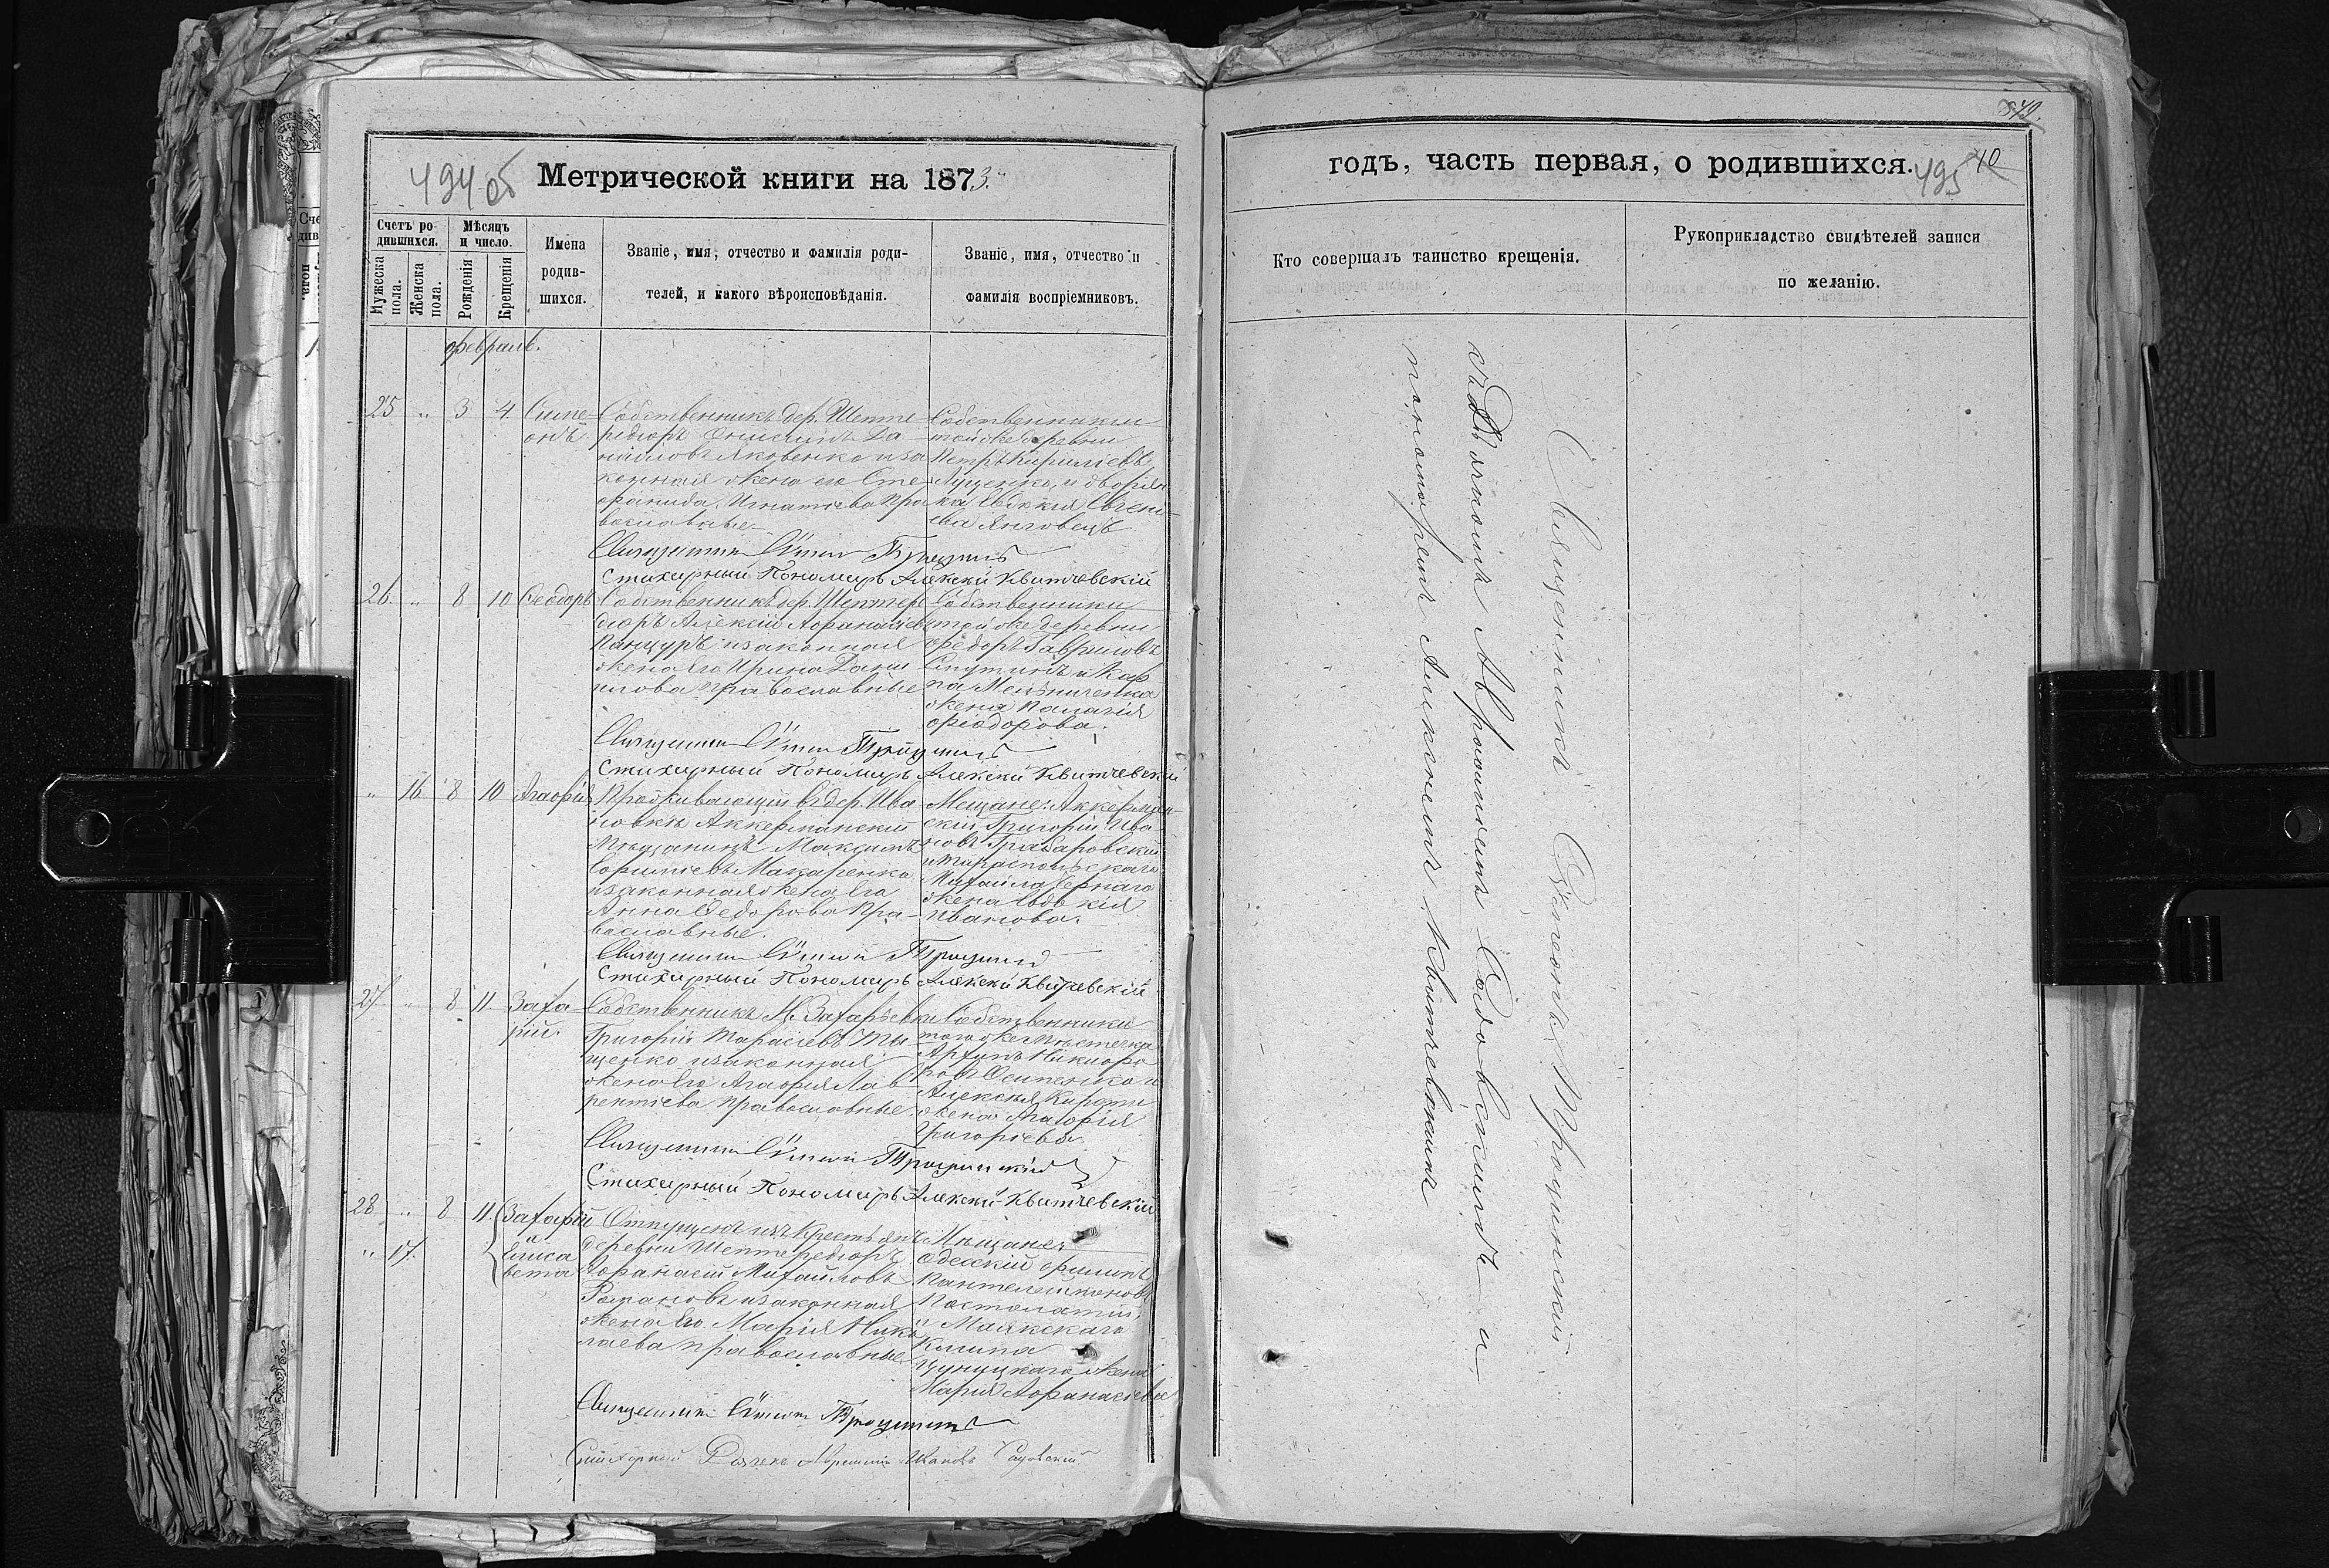 494 об
Метрической книги на 1873.
Счетъ ро-
дившихся.
Мужеска
пола.
Женска
пола.
Мѣсяцъ
и число.
Рожденія
Крещенія
Имена
родив-
шихся.
Званіе, имя, отчество и фамилія роди-
телей, и какого вѣроисповѣданія.
Званіе, имя, отчество и
фамилія воспріемниковъ.
февраль.
25 " 3 4 Симе-
онъ
Собственникъ дер. Шепте
редюръ Онисимъ Да-
ниловъ Яковенко и за
конная жена его Сте-
фанида Игнатіева пра
вославные
Собственники
той же деревни
Петръ Кириліевъ
Луценко, и дворян
ка Евдокія Евгені-
ева Янговецъ
Священникъ Симеонъ Троцинскій
Стихарный Пономарь Алексѣй Квитчевскій
26. " 8 10 Ѳеодоръ
Собственникъ дер. Шептере
дюръ Алексій Афанасіевъ
Панцуръ и законная
жена его Ирина Дани
илова православные
Собственники
той же деревни
Федоръ Гавриловъ
и Кар
па Мельниченка
жена Палагія
Фіодорова.
Священникъ Симеонъ Троцинскій
Стихарный Пономарь Алексѣй Квитчевскій
" 16 8 10 Агафія
Проживающій въ дер. Ива
новкѣ Аккерманскій
Мѣщанинъ Максимъ
Ефиміевъ Макаренко
и законная жена его
Анна Ѳедорова пра-
вославные.
Мещане: Аккерман-
скій Григорій Ива
новъ Грабаровскій
и Тираспольскаго
Михаила Чернаго
жена Евдокія
Иванова.
Священникъ Симеонъ Троцинскій
Стихарный Пономарь Алексѣй Квитчевскій
27 " 8 11. Заха
рій.
Собственникъ М. Захарьевки
Григорій Тарасіевъ Ты
щенко и законная
жена его Агафія Лав
рентіева православные.
Собственники
того же мѣстечка
Архипъ Никифо
ровъ Осипенко и
Алексѣя
жена Агафія
Григоріева
Священникъ Симеонъ Троцинскій
Стихарный Пономарь Алексѣй Квитчевскій
28 " 8 11. Захарій
и
" 17. Елиса
вета
Отпущенъ изъ крестьянъ
деревни Шептередюръ
Афанасій Михайловъ
Романовъ и законная
жена его Марія Нико
лаева православные
Мѣщане:
Одесскій Филипъ
Пантелеймоновъ
и Маякскаго
жена
Марія Афанасіева
Священникъ Симеонъ Троцинскій
Стихарный Дьячекъ Аврамій Ивановъ Садовскій
879.
годъ, часть первая, о родившихся.
495 40
Кто совершалъ таинство крещенія.
Рукоприкладство свидѣтелей записи
по желанію.
Священникъ Симеонъ Троцинскій
съ Дьячкомъ Авраміемъ Садовскимъ и
пономаремъ Алексѣемъ Квитчевскимъ